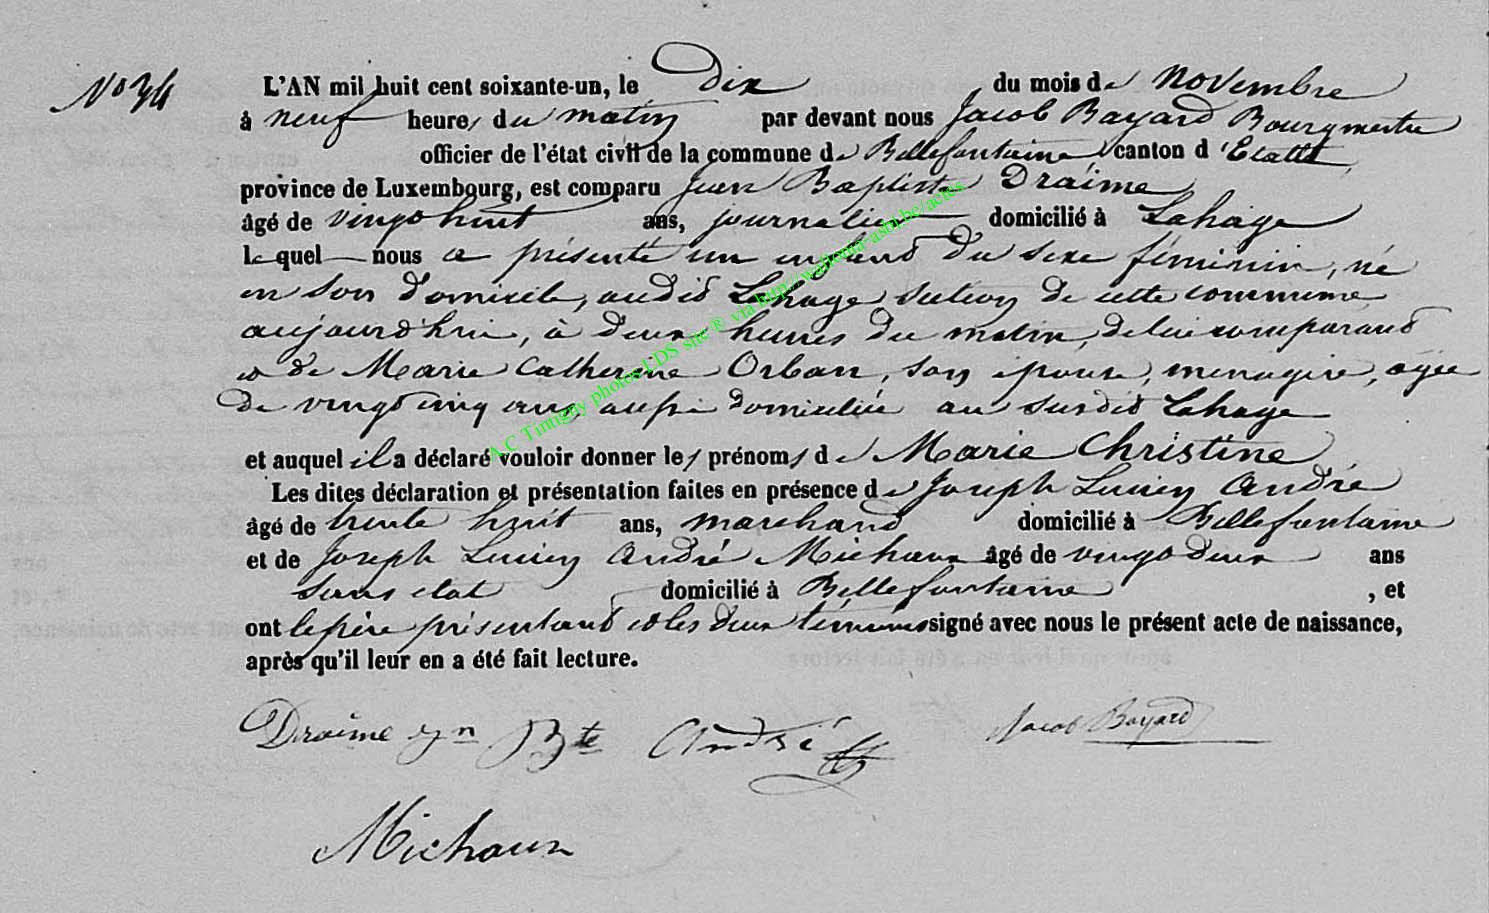 No 34
L'AN mil huit cent soixante-un, le Dix du mois de Novembre
à neuf heures du matin par devant nous Jacob Bayard Bourgmestre
officier de l'état civil de la commune de Bellefontaine canton d'Etalle
province de Luxembourg, est comparu Jean Baptiste Draime
âgé de vingt huit ans, journalier domicilié à Lahage
lequel nous a présenté un enfant du sexe féminin, né
en son domicile, audit Lahage section de cette commune
aujourd'hui, à deux heures du matin, de lui comparant
et de Marie Catherine Orban, son épouse, menagère, agée
de vingt cinq ans, aussi domiciliée au susdit Lahage
et auquel il a déclaré vouloir donner les prénoms de Marie Christine
Les dites déclaration et présentation faites en présence de Joseph Lucien André
âgé de trente huit ans, marchand domicilié à Bellefontaine
et de Joseph Lucien André Michaux âgé de vingt deux ans
sans état domicilié à Bellefontaine, et
ont le père présentant et les deux témoins signé avec nous le présent acte de naissance,
après qu'il leur en a été fait lecture.
Draime jn Bte André Jacob Bayard
Michaux
A.C Tintigny photos LDS site ® via http://wallonia-asbl.be/actes